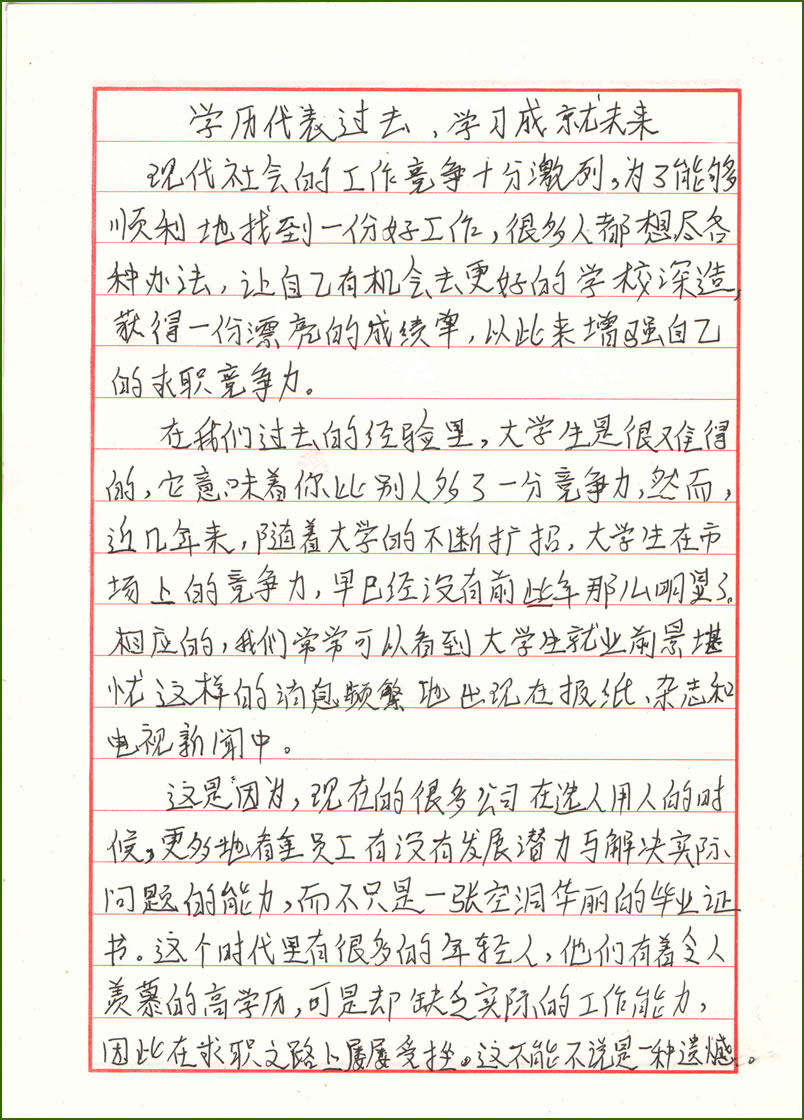 学历代表过去、学习成就未来
现代社会的工作竞争十分激列，为了能够
顺利地找到一份好工作，很多人都想尽各
种办法，让自己有机会去更好的学校深造，
获得一份漂亮的成绩单，以此来增强自己
的求职竞争力。
在我们过去的经验里，大学生是很难得
的，它意味着你比别人多了一分竞争力，然而，
近几年来，随着大学的不断扩招，大学生在市
场上的竞争力，早已经没有前些年那么明显了。
相应的，我们常常可以看到大学生就业前景堪
忧这样的消息频繁地出现在报纸、杂志和
电视新闻中。
这是因为，现在的很多公司在选人用人的时
候，更多地看重员工有没有发展潜力与解决实际
问题的能力，而不只是一张空洞华丽的毕业证
书。这个时代里有很多的年轻人，他们有着令人
羡慕的高学历，可是却缺乏实际的工作能力，
因此在求职之路上屡屡受挫。这不能不说是一种遗憾。